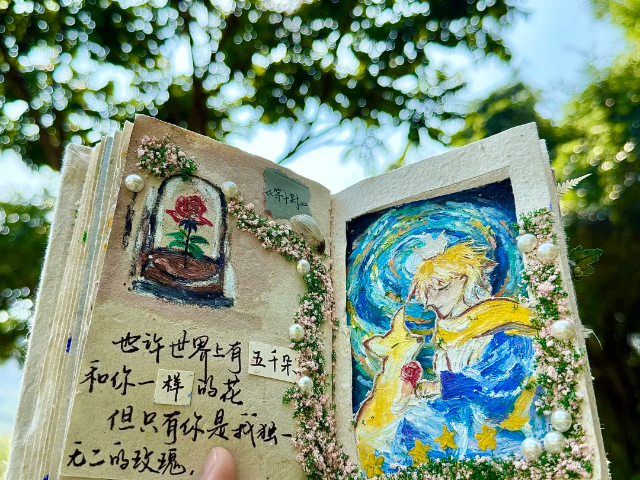 《第十封》
也许世界上有五千朵
和你一样的花
但只有你是我独一
无二的玫瑰.